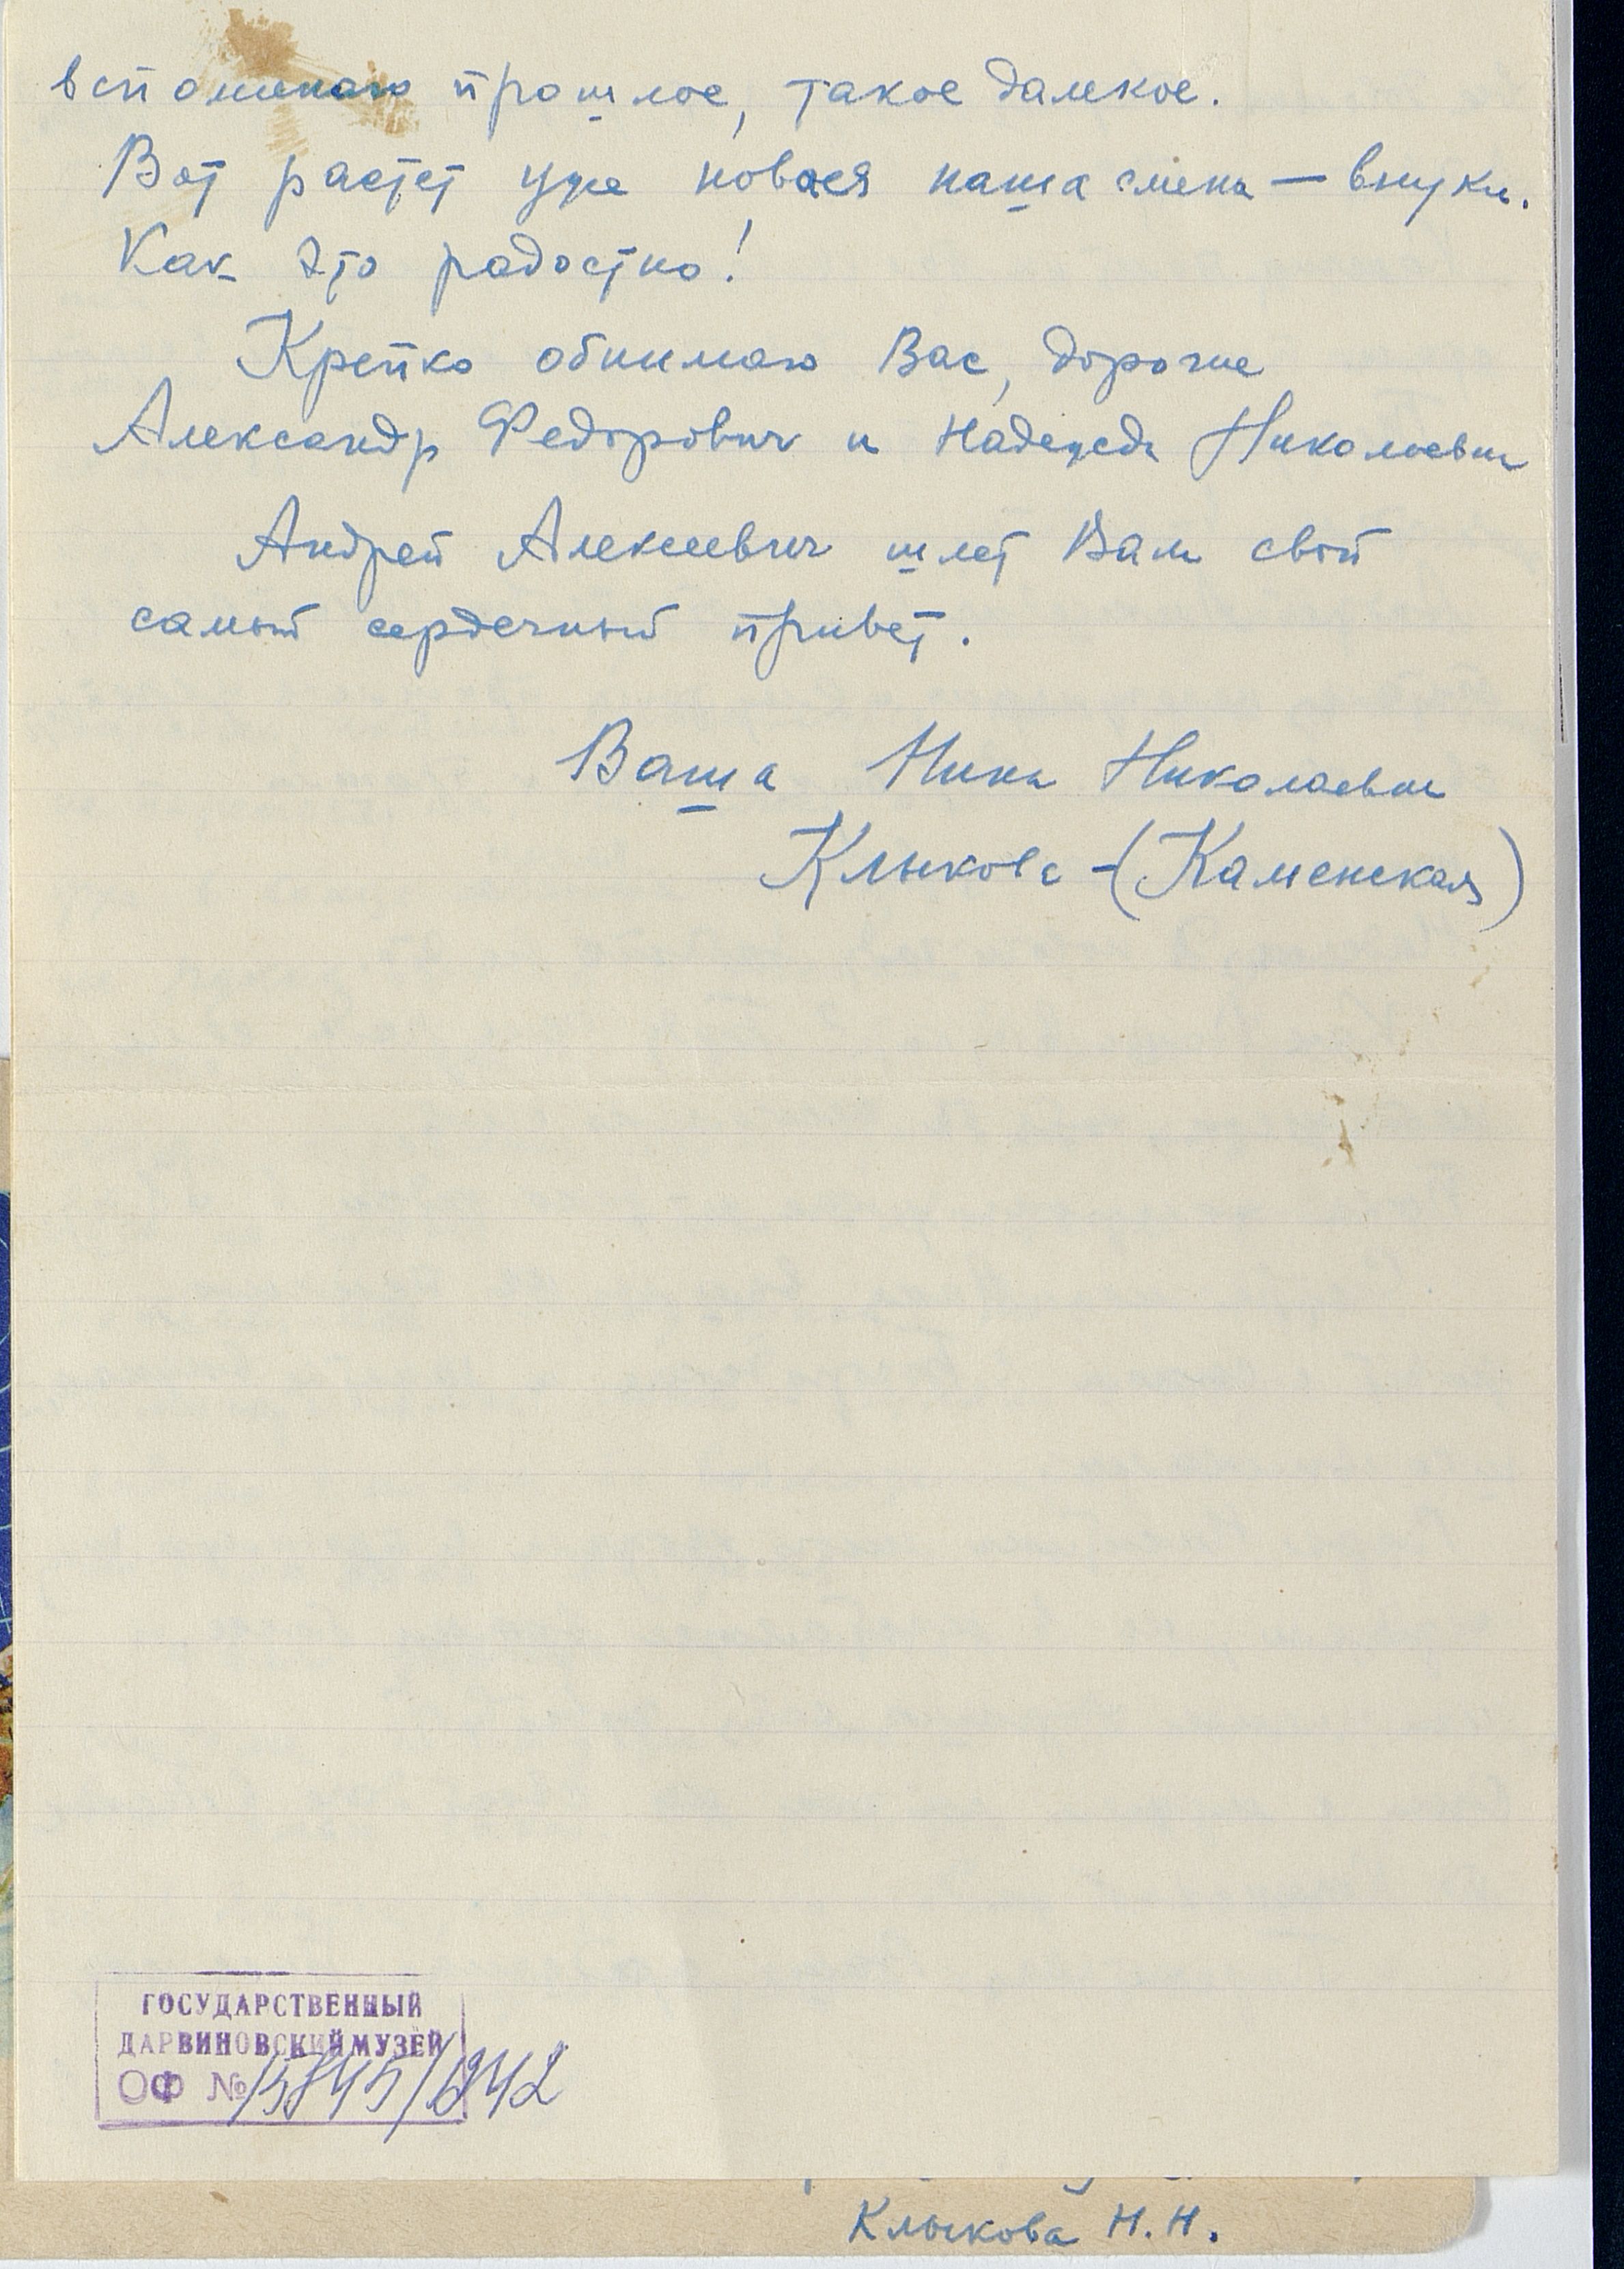 вспоминаю прошлое, такое далекое.
Вот растет уже новая наша смена — внуки.
Как это радостно!
Крепко обнимаю Вас, дорогие
Александр Федорович и Надежда Николаевна
Андрей Алексеевич шлет Вам свой
самый сердечный привет.
Ваша Нина Николаевна
Клыкова - (Каменская)
ГОСУДАРСТВЕННЫЙ
ДАРВИНОВСКИЙ МУЗЕЙ
ОФ №
Клыкова Н.Н.